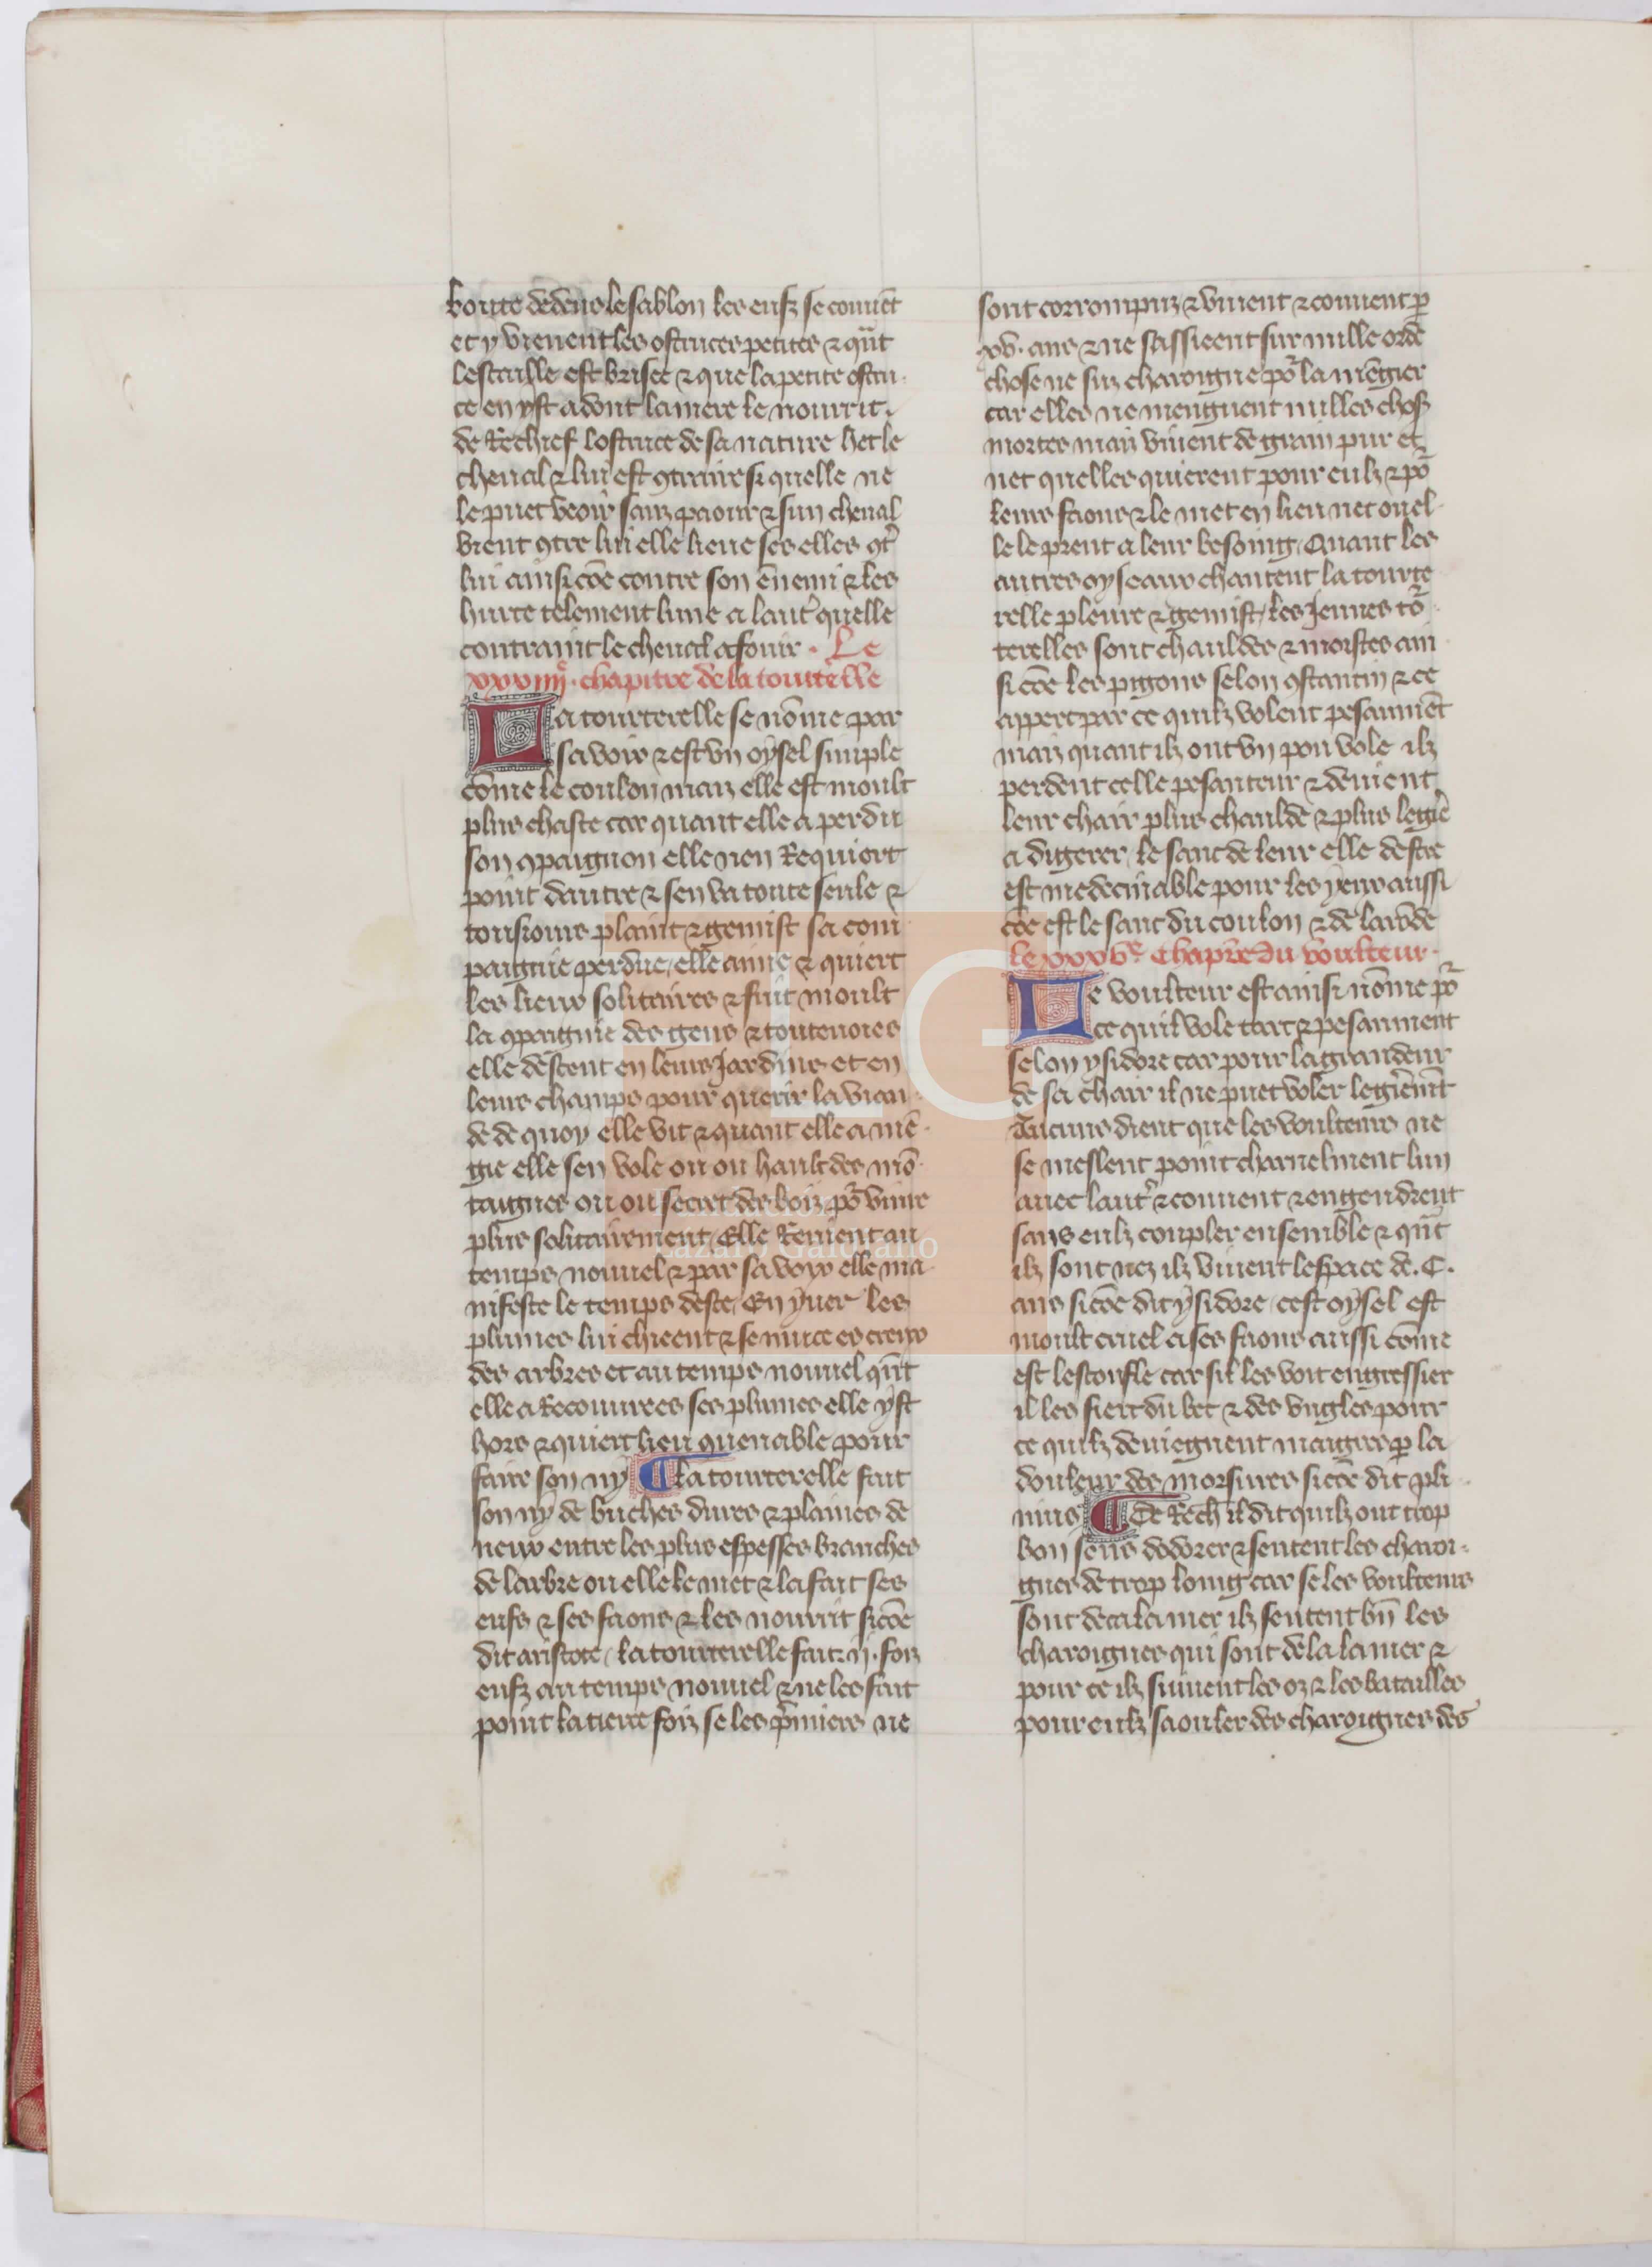 boute dedens le sablon les eufz se couuēt
et y vienent les ostruces petites ⁊ qn̄t
lescaille est brisee ⁊ que la petite ostru
ce en yst adont la mere le nourrit.
de Rechief lostruce de sa nature het le
cheual ⁊ lui est ꝯtraire si quelle ne
le puet veoir sanz paour ⁊ sun cheual
vient ꝯtre lui elle lieue ses elles ꝯtͤ
lui ainsi cōe contre son ēnemi ⁊ les
hurte telement lune a lautˀ quelle
contraint le cheual a fouir . Le
xxxiiiiͤ. chapitre de la tourterelle
La tourterelle se nōme par
sa voix ⁊ est vn oysel simple
cōme le coulon maiz elle est moult
plus chaste car quant elle a perdu
son ꝯpaignon elle nen Requiert
point dautre ⁊ sen va toute seule ⁊
tousiours plaint ⁊ gemist sa com
paignie perdue / elle aime ⁊ quiert
les lieux solitaires ⁊ fuit moult
la ꝯpaignie des gens ⁊ toutenoies
elle descent en leurs Jardins et en
leurs champs pour querir la vian
de de quoy elle vit ⁊ quant elle a mē
gie elle sen vole ou ou hault des mō
taignes ou ou secret des boiz pō viure
plus solitairement / Elle Reuient au
temps nouuel ⁊ par sa voix elle ma
nifeste le temps deste / En yuer les
plumes lui chieent ⁊ se muce es creux
des arbres et au temps nouuel qn̄t
elle a Recouurees ses plumes elle yst
hors ⁊ quiert lieu ꝯuenable pour
faire son ny ¶ La tourterelle fait
son ny de buches dures ⁊ plaines de
neux entre les plus espesses branches
de larbre ou elle le met ⁊ la fait ses
eufs ⁊ ses faons ⁊ les nourrit sicōe
dit aristote / La tourterelle fait .ij. foiz
eufz au temps nouuel ⁊ ne les fait
point la tierce foiz se les p̄miers ne
sont corrompuz ⁊ viuent ⁊ couuent ꝑ
xv. ans ⁊ ne sassieent sur nulle orde
chose ne suz charoigne pō la mēgier
car elles ne menguent nulles choſ
mortes maiz viuent de grain pur et
net quelles quierent pour eulz ⁊ pō
leurs faons ⁊ le met en lieu net ou el
le le prent a leur besoing / Quant les
autres oyseaux chantent la tourte
relle pleure ⁊ gemist / les Jeunes tō
terelles sont chauldes ⁊ moistes ain
si cōe les pigons selon ꝯstantin ⁊ ce
appert par ce quilz volent pesanmēt
maiz quant ilz ont vn pou vole ilz
perdent celle pesanteur ⁊ deuient
leur chair plus chaulde ⁊ plus legiē
a digerer / le sanc de leur elle destre
est medecinable pour les yeux aussi
cōe est le sanc du coulon ⁊ de larōde
le xxxvͤ. chapr̄e du voulteur.
Le voulteur est ainsi nōme pō
ce quil vole tart ⁊ pesanment
selon ysidore car pour la grandeur
de sa chair il ne puet voler legieremēt
Aucuns dient que les voulteurs ne
se meslent point charnelment lun
auec lautˀ ⁊ couuent ⁊ engendrent
sans eulz coupler ensemble ⁊ qn̄t
ilz sont nez ilz viuent lespace de .C.
ans sicōe dit ysidore / cest oysel est
moult cruel a ses faons aussi cōme
est lescoufle car sil les voit engressier
il les fiert du bec ⁊ des vngles pour
ce quilz deuiegnent maigres ꝑ la
douleur des morsures sicōe dit pli
nius ¶ De Rech il dit quilz ont trop
bon sens dodorer ⁊ sentent les charoi
gnes de trop loing car se les voulteurs
sont deca la mer ilz sentent bn̄ les
charoignes qui sont dela la mer ⁊
pour ce ilz suiuent les oz ⁊ les batailles
pour eulz saouler des charoignes des
FLG
Fundación
Lázaro Galdiano